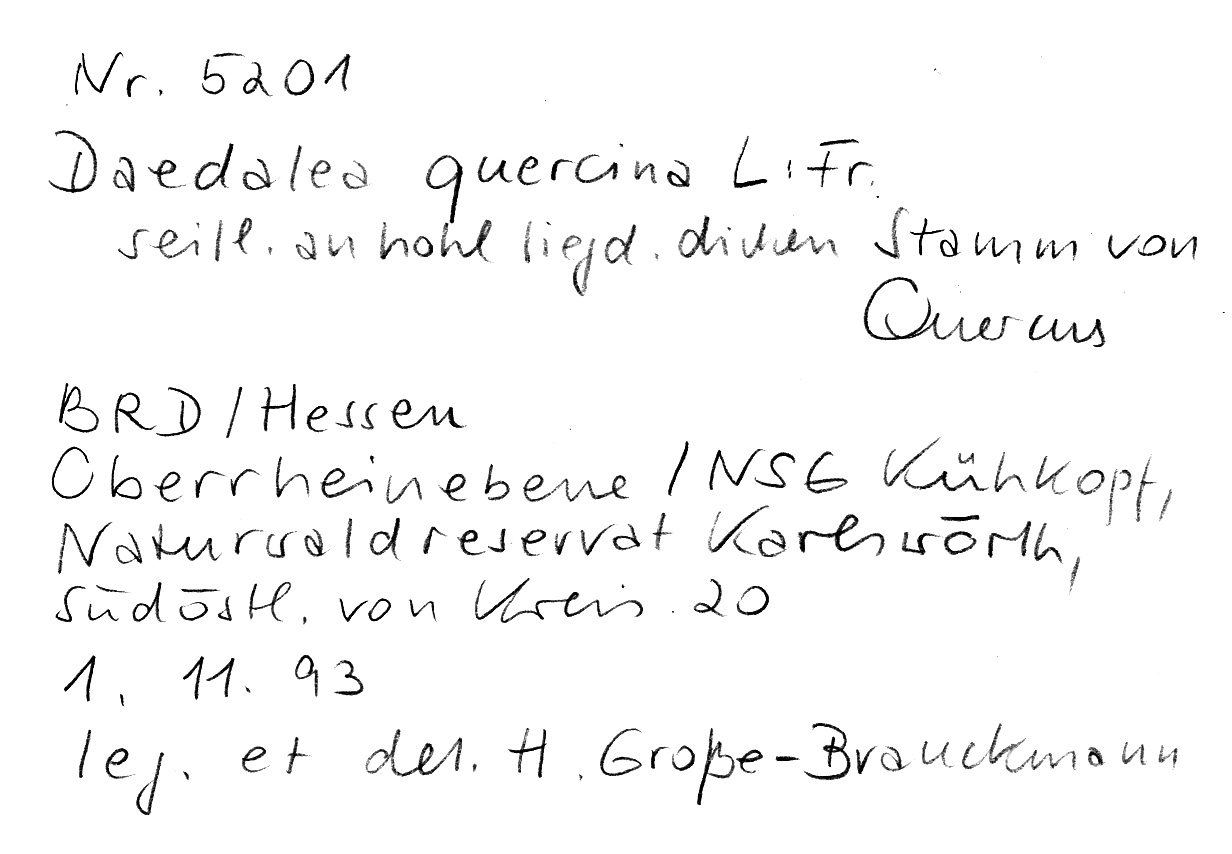 Nr. 5201
Daedalea quercina L:Fr.
seitl. an hohl liegd. dicken Stamm von
Quercus
BRD/Hessen
Oberrheinebene/NSG Kühkopf,
Naturwaldreservat Karlswörth,
südöstl. von Kreis 20
1. 11. 93
leg. et det. H. Große-Brauckmann